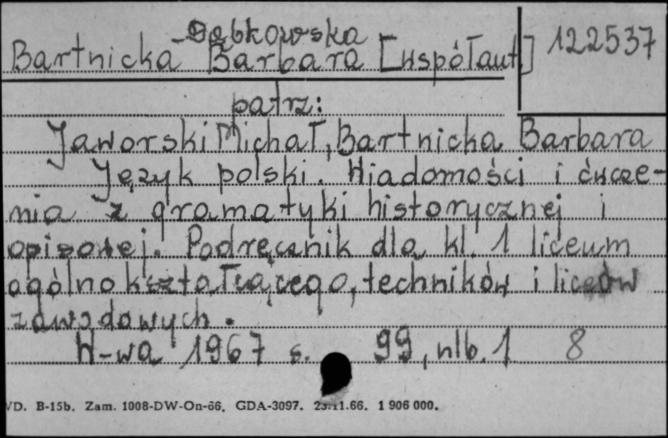 -Dąbkowska
Bartnicka Barbara [współaut.] 122537
patrz:
Jaworski Michał, Bartnicka Barbara
Język polski. Wiadomości i ćwicze-
nia z gramatyki historycznej i
opisowej. Podręcznik dla kl. 1 liceum
ogólnokształcącego, techników i liceów
zawodowych.
W-wa 1967 s. 99, nlb. 1 8
VD. B-15b. Zam. 1008-DW-On-66. GDA-3097. 23.11.66. 1 906 000.